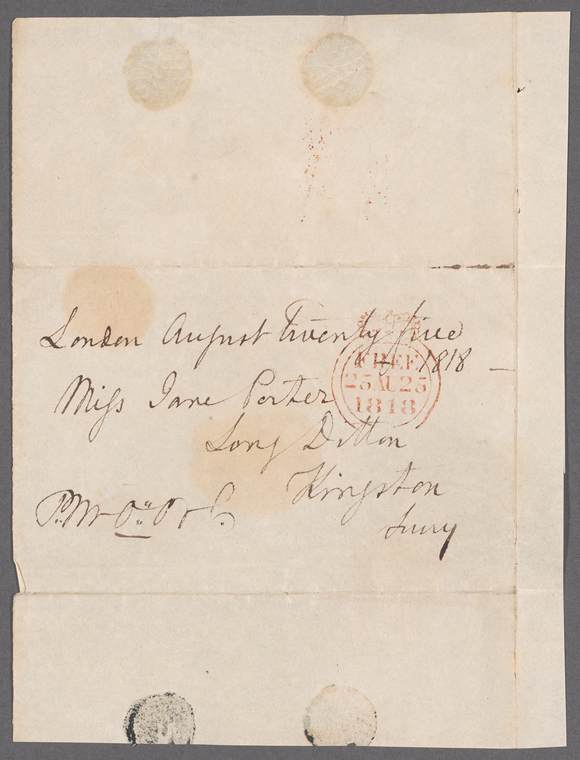 London August Twenty five
1818 —
FREE
25 AU 25
1818
Miss Jane Porter
Long Ditton
Kingston
Surry